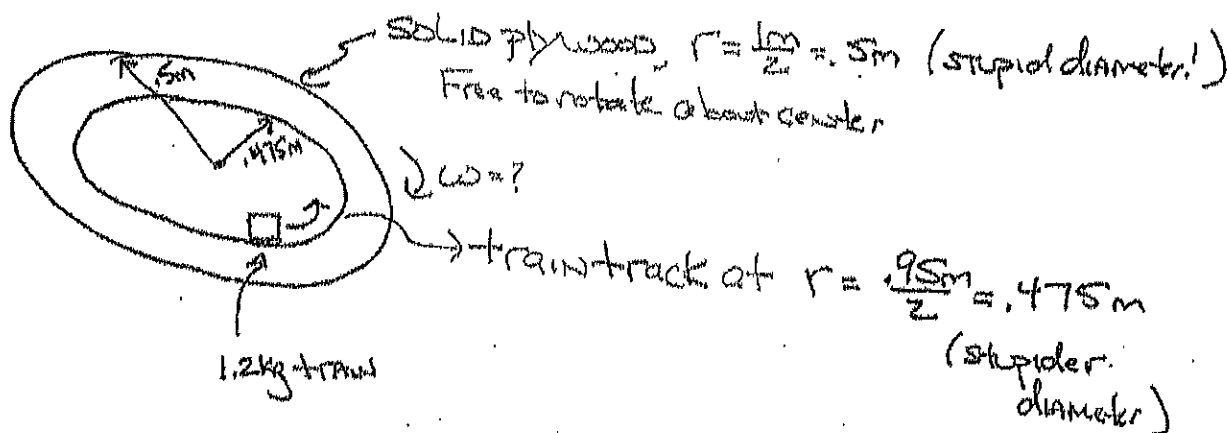 SOLID plywood, r = 1m/2 = .5m (stupid diameter!)
Free to rotate about center
.5m
.475m
ω = ?
train track at r = .95m/2 = .475m
(stupider diameter)
1.2kg train